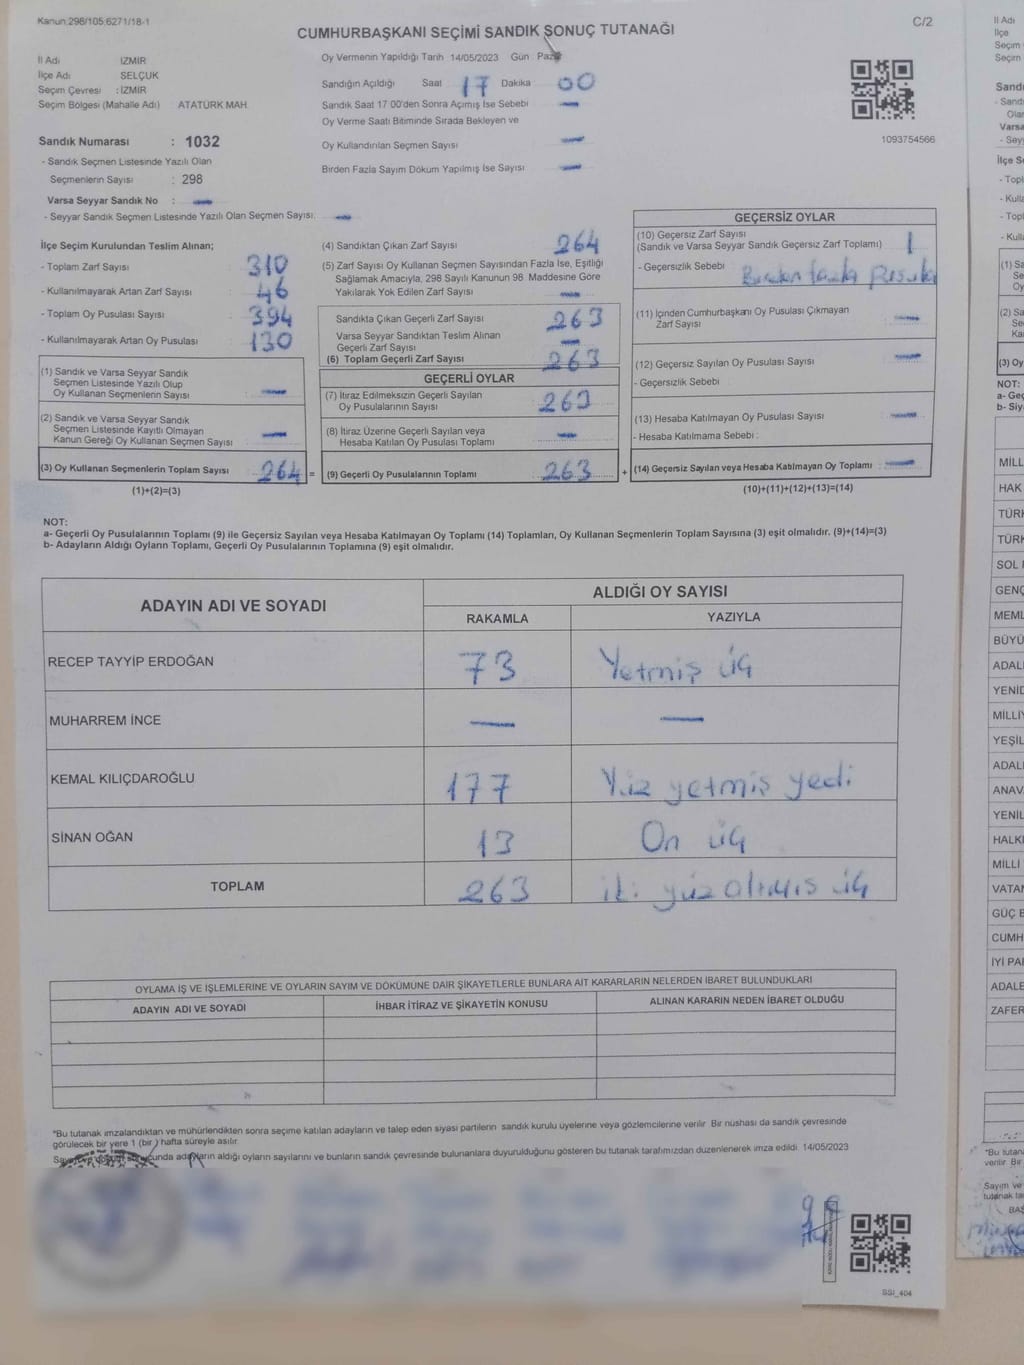 Kanun:298/105,6271/18-1
C/2
CUMHURBAŞKANI SEÇİMİ SANDIK SONUÇ TUTANAĞI
İl Adı İZMİR
İlçe Adı SELÇUK
Seçim Çevresi : İZMİR
Seçim Bölgesi (Mahalle Adı) ATATÜRK MAH.
Sandık Numarası : 1032
- Sandık Seçmen Listesinde Yazılı Olan
Seçmenlerin Sayısı : 298
Varsa Seyyar Sandık No : —
- Seyyar Sandık Seçmen Listesinde Yazılı Olan Seçmen Sayısı: —
Oy Vermenin Yapıldığı Tarih 14/05/2023 Gün Pazar
Sandığın Açıldığı Saat 17 Dakika 00
Sandık Saat 17 00'den Sonra Açımış İse Sebebi —
Oy Verme Saati Bitiminde Sırada Bekleyen ve
Oy Kullandırılan Seçmen Sayısı —
Birden Fazla Sayım Döküm Yapılmış İse Sayısı —
1093754566
İlçe Seçim Kurulundan Teslim Alınan;
- Toplam Zarf Sayısı 310
- Kullanılmayarak Artan Zarf Sayısı 46
- Toplam Oy Pusulası Sayısı 394
- Kullanılmayarak Artan Oy Pusulası 130
(1) Sandık ve Varsa Seyyar Sandık
Seçmen Listesinde Yazılı Olup
Oy Kullanan Seçmenlerin Sayısı —
(2) Sandık ve Varsa Seyyar Sandık
Seçmen Listesinde Kayıtlı Olmayan
Kanun Gereği Oy Kullanan Seçmen Sayısı —
(3) Oy Kullanan Seçmenlerin Toplam Sayısı 264 =
(1)+(2)=(3)
(4) Sandıktan Çıkan Zarf Sayısı 264
(5) Zarf Sayısı Oy Kullanan Seçmen Sayısından Fazla İse, Eşitliği
Sağlamak Amacıyla, 298 Sayılı Kanunun 98. Maddesine Göre
Yakılarak Yok Edilen Zarf Sayısı —
Sandıkta Çıkan Geçerli Zarf Sayısı 263
Varsa Seyyar Sandıktan Teslim Alınan
Geçerli Zarf Sayısı —
(6) Toplam Geçerli Zarf Sayısı 263
GEÇERLİ OYLAR
(7) İtiraz Edilmeksizin Geçerli Sayılan
Oy Pusulalarının Sayısı 263
(8) İtiraz Üzerine Geçerli Sayılan veya
Hesaba Katılan Oy Pusulası Toplamı —
(9) Geçerli Oy Pusulalarının Toplamı 263 +
GEÇERSİZ OYLAR
(10) Geçersiz Zarf Sayısı
(Sandık ve Varsa Seyyar Sandık Geçersiz Zarf Toplamı) 1
- Geçersizlik Sebebi Birden fazla pusula
(11) İçinden Cumhurbaşkanı Oy Pusulası Çıkmayan
Zarf Sayısı —
(12) Geçersiz Sayılan Oy Pusulası Sayısı —
- Geçersizlik Sebebi
(13) Hesaba Katılmayan Oy Pusulası Sayısı —
- Hesaba Katılmama Sebebi :
(14) Geçersiz Sayılan veya Hesaba Katılmayan Oy Toplamı : —
(10)+(11)+(12)+(13)=(14)
NOT:
a- Geçerli Oy Pusulalarının Toplamı (9) ile Geçersiz Sayılan veya Hesaba Katılmayan Oy Toplamı (14) Toplamları, Oy Kullanan Seçmenlerin Toplam Sayısına (3) eşit olmalıdır. (9)+(14)=(3)
b- Adayların Aldığı Oyların Toplamı, Geçerli Oy Pusulalarının Toplamına (9) eşit olmalıdır.
ADAYIN ADI VE SOYADI ALDIĞI OY SAYISI
RAKAMLA YAZIYLA
RECEP TAYYİP ERDOĞAN 73 Yetmiş üç
MUHARREM İNCE — —
KEMAL KILIÇDAROĞLU 177 Yüz yetmiş yedi
SİNAN OĞAN 13 On üç
TOPLAM 263 iki yüz altmış üç
OYLAMA İŞ VE İŞLEMLERİNE VE OYLARIN SAYIM VE DÖKÜMÜNE DAİR ŞİKAYETLERLE BUNLARA AİT KARARLARIN NELERDEN İBARET BULUNDUKLARI
ADAYIN ADI VE SOYADI İHBAR İTİRAZ VE ŞİKAYETİN KONUSU ALINAN KARARIN NEDEN İBARET OLDUĞU
*Bu tutanak imzalandıktan ve mühürlendikten sonra seçime katılan adayların ve talep eden siyasi partilerin sandık kurulu üyelerine veya gözlemcilerine verilir Bir nüshası da sandık çevresinde
görülecek bir yere 1 (bir ) hafta süreyle asılır.
adayların aldığı oyların sayılarını ve bunların sandık çevresinde bulunanlara duyurulduğunu gösteren bu tutanak tarafımızdan düzenlenerek imza edildi. 14/05/2023
SSI_404
İl Adı
İlçe
Seçim
Seçim
NOT:
MİLL
HAK
TÜRK
TÜRK
SOL
GENÇ
MEML
BÜYÜ
ADAL
YENİD
MİLLİ
YEŞİL
ADAL
ANAV
YENİL
HALK
MİLLİ
VATAN
GÜÇ B
CUMH
İYİ PA
ADALE
ZAFER
*Bu tutan
verilir Bir
Sayım ve
tutanak ta